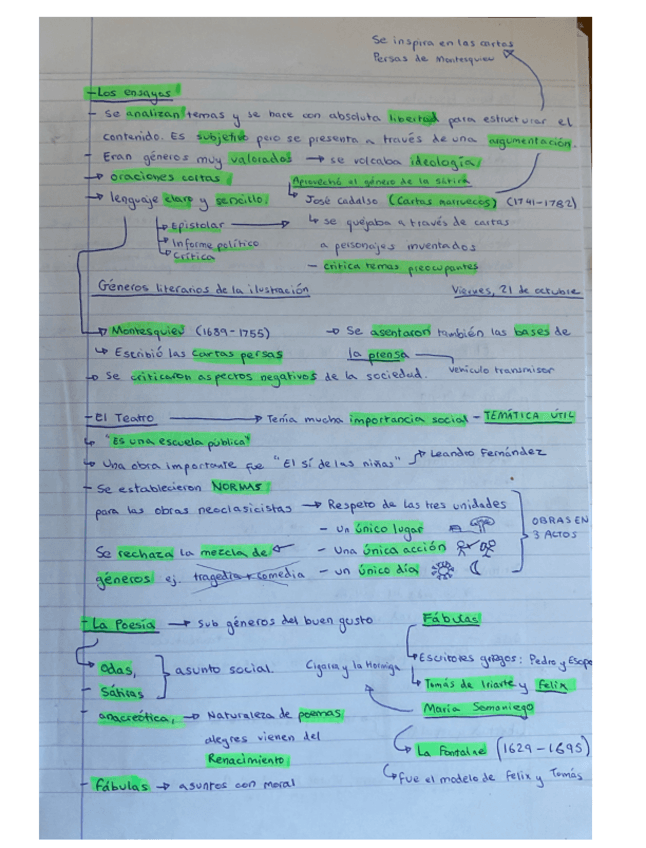 Se inspira en las cartas
Persas de Montesquieu
- Los ensayos
- Se analizan temas y se hace con absoluta libertad para estructurar el
contenido. Es subjetivo pero se presenta a través de una argumentación.
- Eran géneros muy valorados → se volcaba ideología
→ oraciones cortas
Aprovechó el género de la sátira
→ lenguaje claro y sencillo.
José Cadalso (Cartas marruecos) (1741-1782)
→ Epistolar →
↳ se quejaba a través de cartas
→ Informe político
a personajes inventados
→ Crítica
- critica temas preocupantes
Géneros literarios de la ilustración
Viernes, 21 de octubre
→ Montesquieu (1689-1755)
→ Se asentaron también las bases de
↳ Escribió las cartas persas
la prensa — vehículo transmisor
→ Se criticaron aspectos negativos de la sociedad.
- El Teatro → Tenía mucha importancia social - TEMÁTICA ÚTIL
↳ "Es una escuela pública"
↳ Una obra importante fue "El sí de las niñas" → Leandro Fernández
- Se establecieron NORMAS
para las obras neoclasicistas → Respeto de las tres unidades
- Un único lugar
OBRAS EN
3 ACTOS
Se rechaza la mezcla de
- Una única acción
géneros ej. tragedia + comedia
- un único día
- La Poesía → Sub géneros del buen gusto
Fábulas
→ Odas,
- Sátiras
asunto social.
Cigarra y la Hormiga
↳ Escritores griegos: Pedro y Esopo
↳ Tomás de Iriarte y Felix
María Samaniego
- anacreótica, → Naturaleza de poemas
alegres vienen del
Renacimiento.
↳ La Fontaine (1629-1695)
↳ Fue el modelo de Felix y Tomás
- Fábulas → asuntos con moral